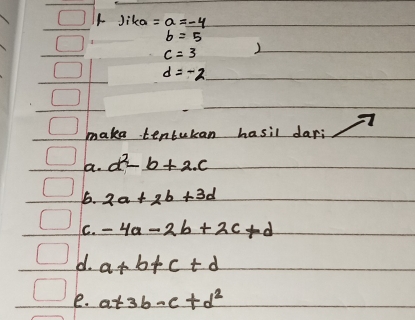 1. Jika = a = -4
b = 5
c = 3
d = -2
maka tentukan hasil dari
a. d² - b + 2.c
b. 2a + 2b + 3d
c. - 4a - 2b + 2c + d
d. a + b + c + d
e. a + 3b - c + d²